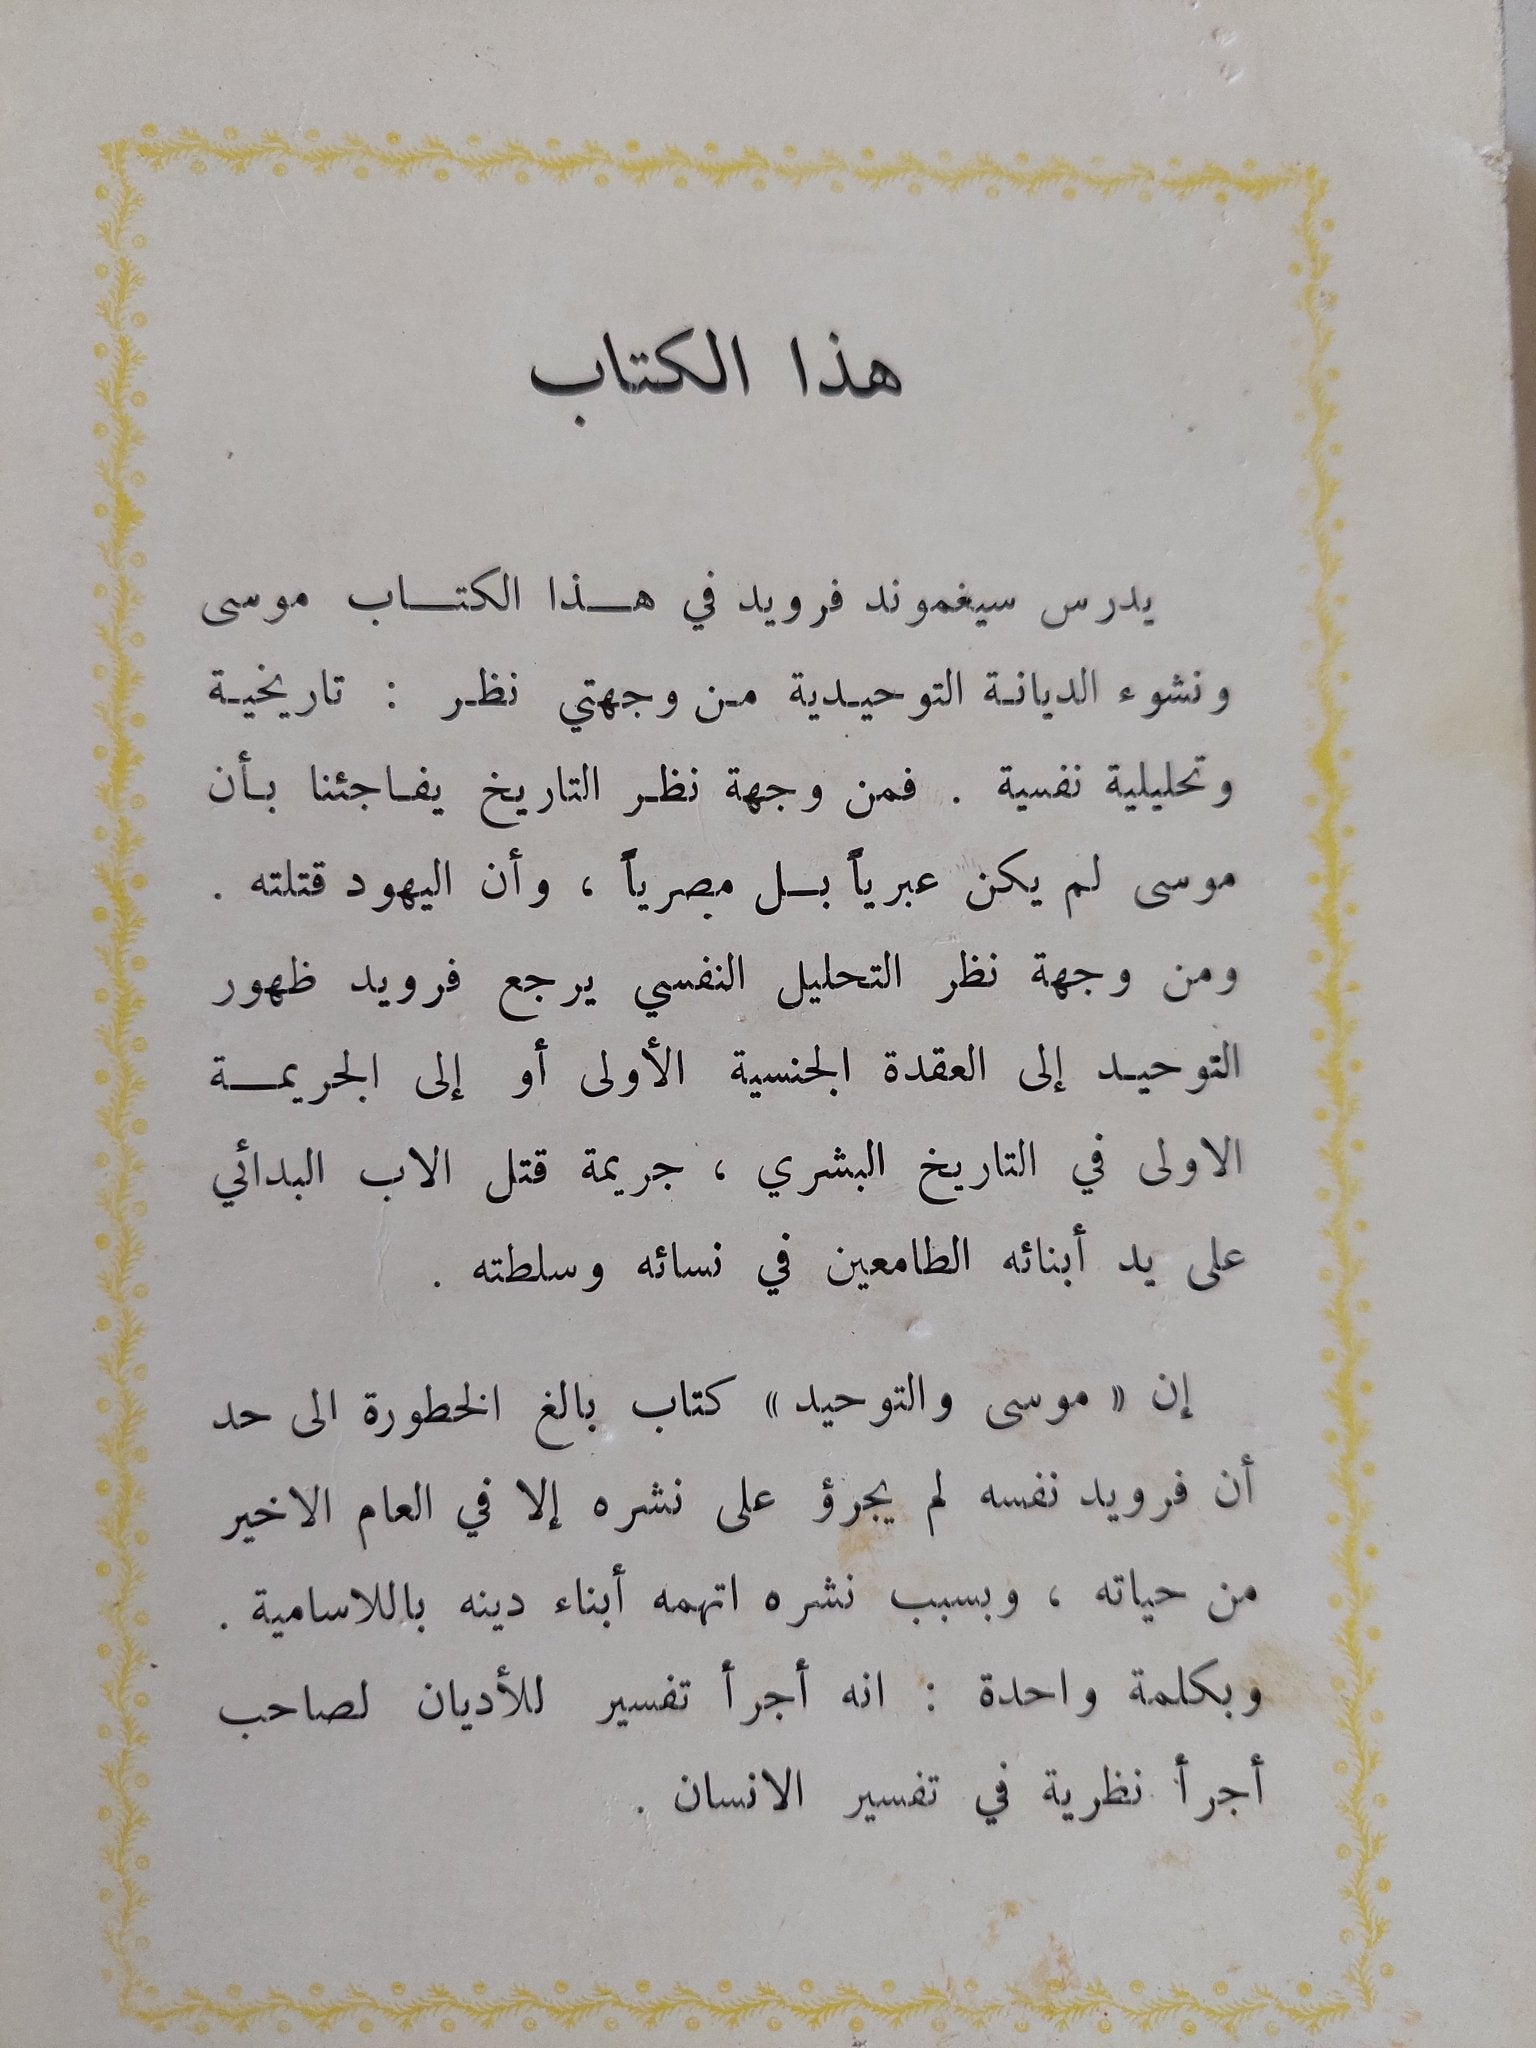 هذا الكتاب
يدرس سيغموند فرويد في هــذا الكتــاب موسى
ونشوء الديانـة التوحيـدية مـن وجهتي نظـر : تاريخيـة
وتحليلية نفسية . فمن وجهة نظـر التاريخ يفـاجئنا بـأن
موسى لم يكن عبرياً بــل مصرياً ، وأن اليهود قتلته .
ومن وجهة نظر التحليل النفسي يرجع فرويد ظهور
التوحيـد إلى العقدة الجنسية الأولى أو إلى الجريمــة
الاولى في التاريخ البشري ، جريمة قتل الاب البدائي
على يد أبنائه الطامعين في نسائه وسلطته .
إن « موسى والتوحيد » كتاب بالغ الخطورة الى حد
أن فرويد نفسه لم يجرؤ على نشره إلا في العام الاخير
من حياته ، وبسبب نشره اتهمه أبناء دينه باللاسامية .
وبكلمة واحدة : انه أجرأ تفسير للأديان لصاحب
أجرأ نظرية في تفسير الانسان .